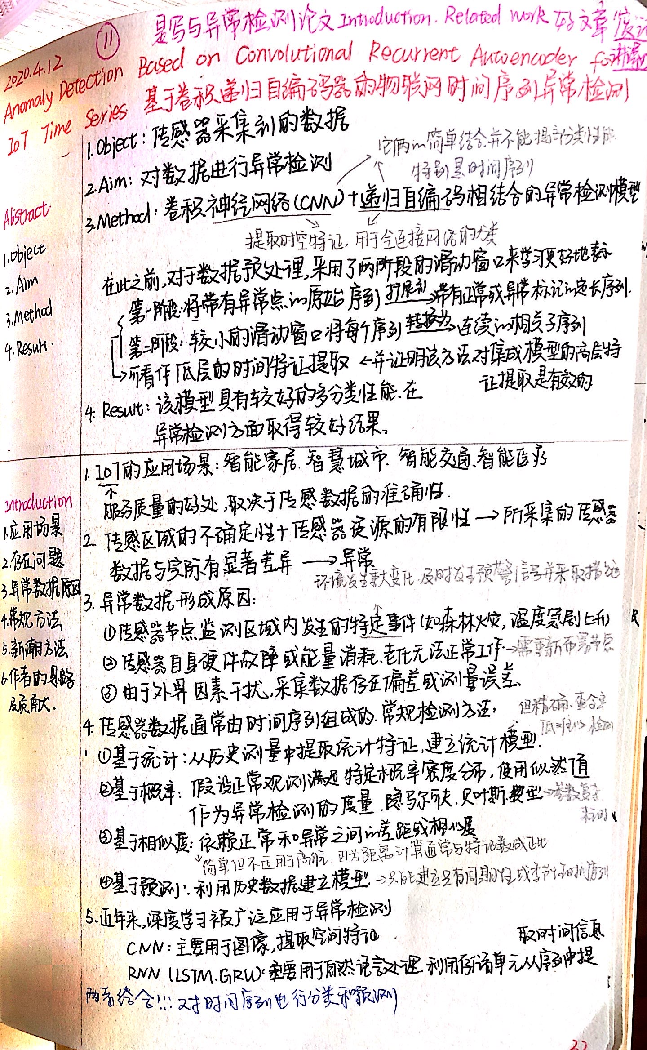 是写与异常检测论文Introduction. Related work 好文章
2020.4.12
⑪
Anomaly Detection Based on Convolutional Recurrent Autoencoder for
IoT Time Series 基于卷积递归自编码器的物联网时间序列异常检测
Abstract
1.Object
2.Aim
3.Method
4.Result
1.Object: 传感器采集到的数据
2.Aim: 对数据进行异常检测
它俩的简单结合并不能提高分类性能
特别是时间序列
3.Method: 卷积神经网络(CNN)+递归自编码相结合的异常检测模型
提取时空特征, 用于全连接网络的分类
在此之前,对于数据预处理,采用了两阶段的滑动窗口来学习更好地表示
第一阶段:将带有异常点的原始序列 扩展到→带有正常或异常标记的定长序列.
第二阶段:较小的滑动窗口将每个序列 转换为→连续的相关子序列
所看作低层的时间特征提取 ←并证明该方法对集成模型的高层特
征提取是有效的
4. Result: 该模型具有较好的多分类性能.在
异常检测方面取得较好结果.
Introduction
1.应用场景
2.存在问题
3.异常数据原因
4.常规方法
5.新潮方法
6.作者的思路
1. IoT的应用场景:智能家居.智慧城市.智能交通.智能医疗
服务质量的好处,取决于传感数据的准确性.
2. 传感区域的不确定性+传感器资源的有限性→所采集的传感器
数据与实际有显著差异 → 异常
环境发生重大变化,及时发预警信号并采取措施
3. 异常数据形成原因:
①传感器节点监测区域内发生的特定事件(如森林火灾,温度急剧上升)
②传感器自身硬件故障或能量消耗.老化无法正常工作→需重新布署节点
③由于外界因素干扰,采集数据存在偏差或测量误差.
4. 传感器数据通常由时间序列组成的.常规检测方法:
①基于统计:从历史测量中提取统计特征,建立统计模型.
②基于概率: 假设正常观测满足特定概率密度分布,使用似然值
作为异常检测的度量.隐马尔夫.贝叶斯模型→参数复杂
③基于相似度:依赖正常和异常之间的差距或相似度
简单但不适用于高维,因为距离计算通常与特征数成正比
④基于预测:利用历史数据建立模型→只能建立具有周期性或季节性的时间序列
5. 近年来,深度学习被广泛应用于异常检测
CNN: 主要用于图像,提取空间特征
取时间信息
RNN (LSTM.GRU): 主要用于自然语言处理 利用存储单元从序列中提
两者结合!!! 对时间序列进行分类和预测